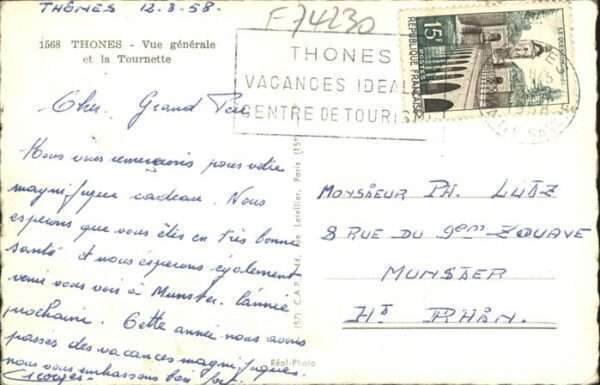 THÔNES 12-8-58.
F74230
1568 THONES - Vue générale
et la Tournette
THONES
VACANCES IDEAL
CENTRE DE TOURIS
15f
REPUBLIQUE FRANÇAISE
POSTES
Cher Grand Père
Nous vous remercions pour votre
magnifique cadeau. Nous
esperons que vous êtes en très bonne
santé et nous esperons également
venir vous voir à Munster l'année
prochaine. Cette année nous avons
passés des vacances magnifiques.
nous vous embrassons bien fort.
Georges
MONSIEUR PH. LUTZ
8 RUE DU 9em ZOUAVE
MUNSTER
Ht RHIN.
(57) C.A.P. rue Letellier, Paris (15e)
Réal-Photo